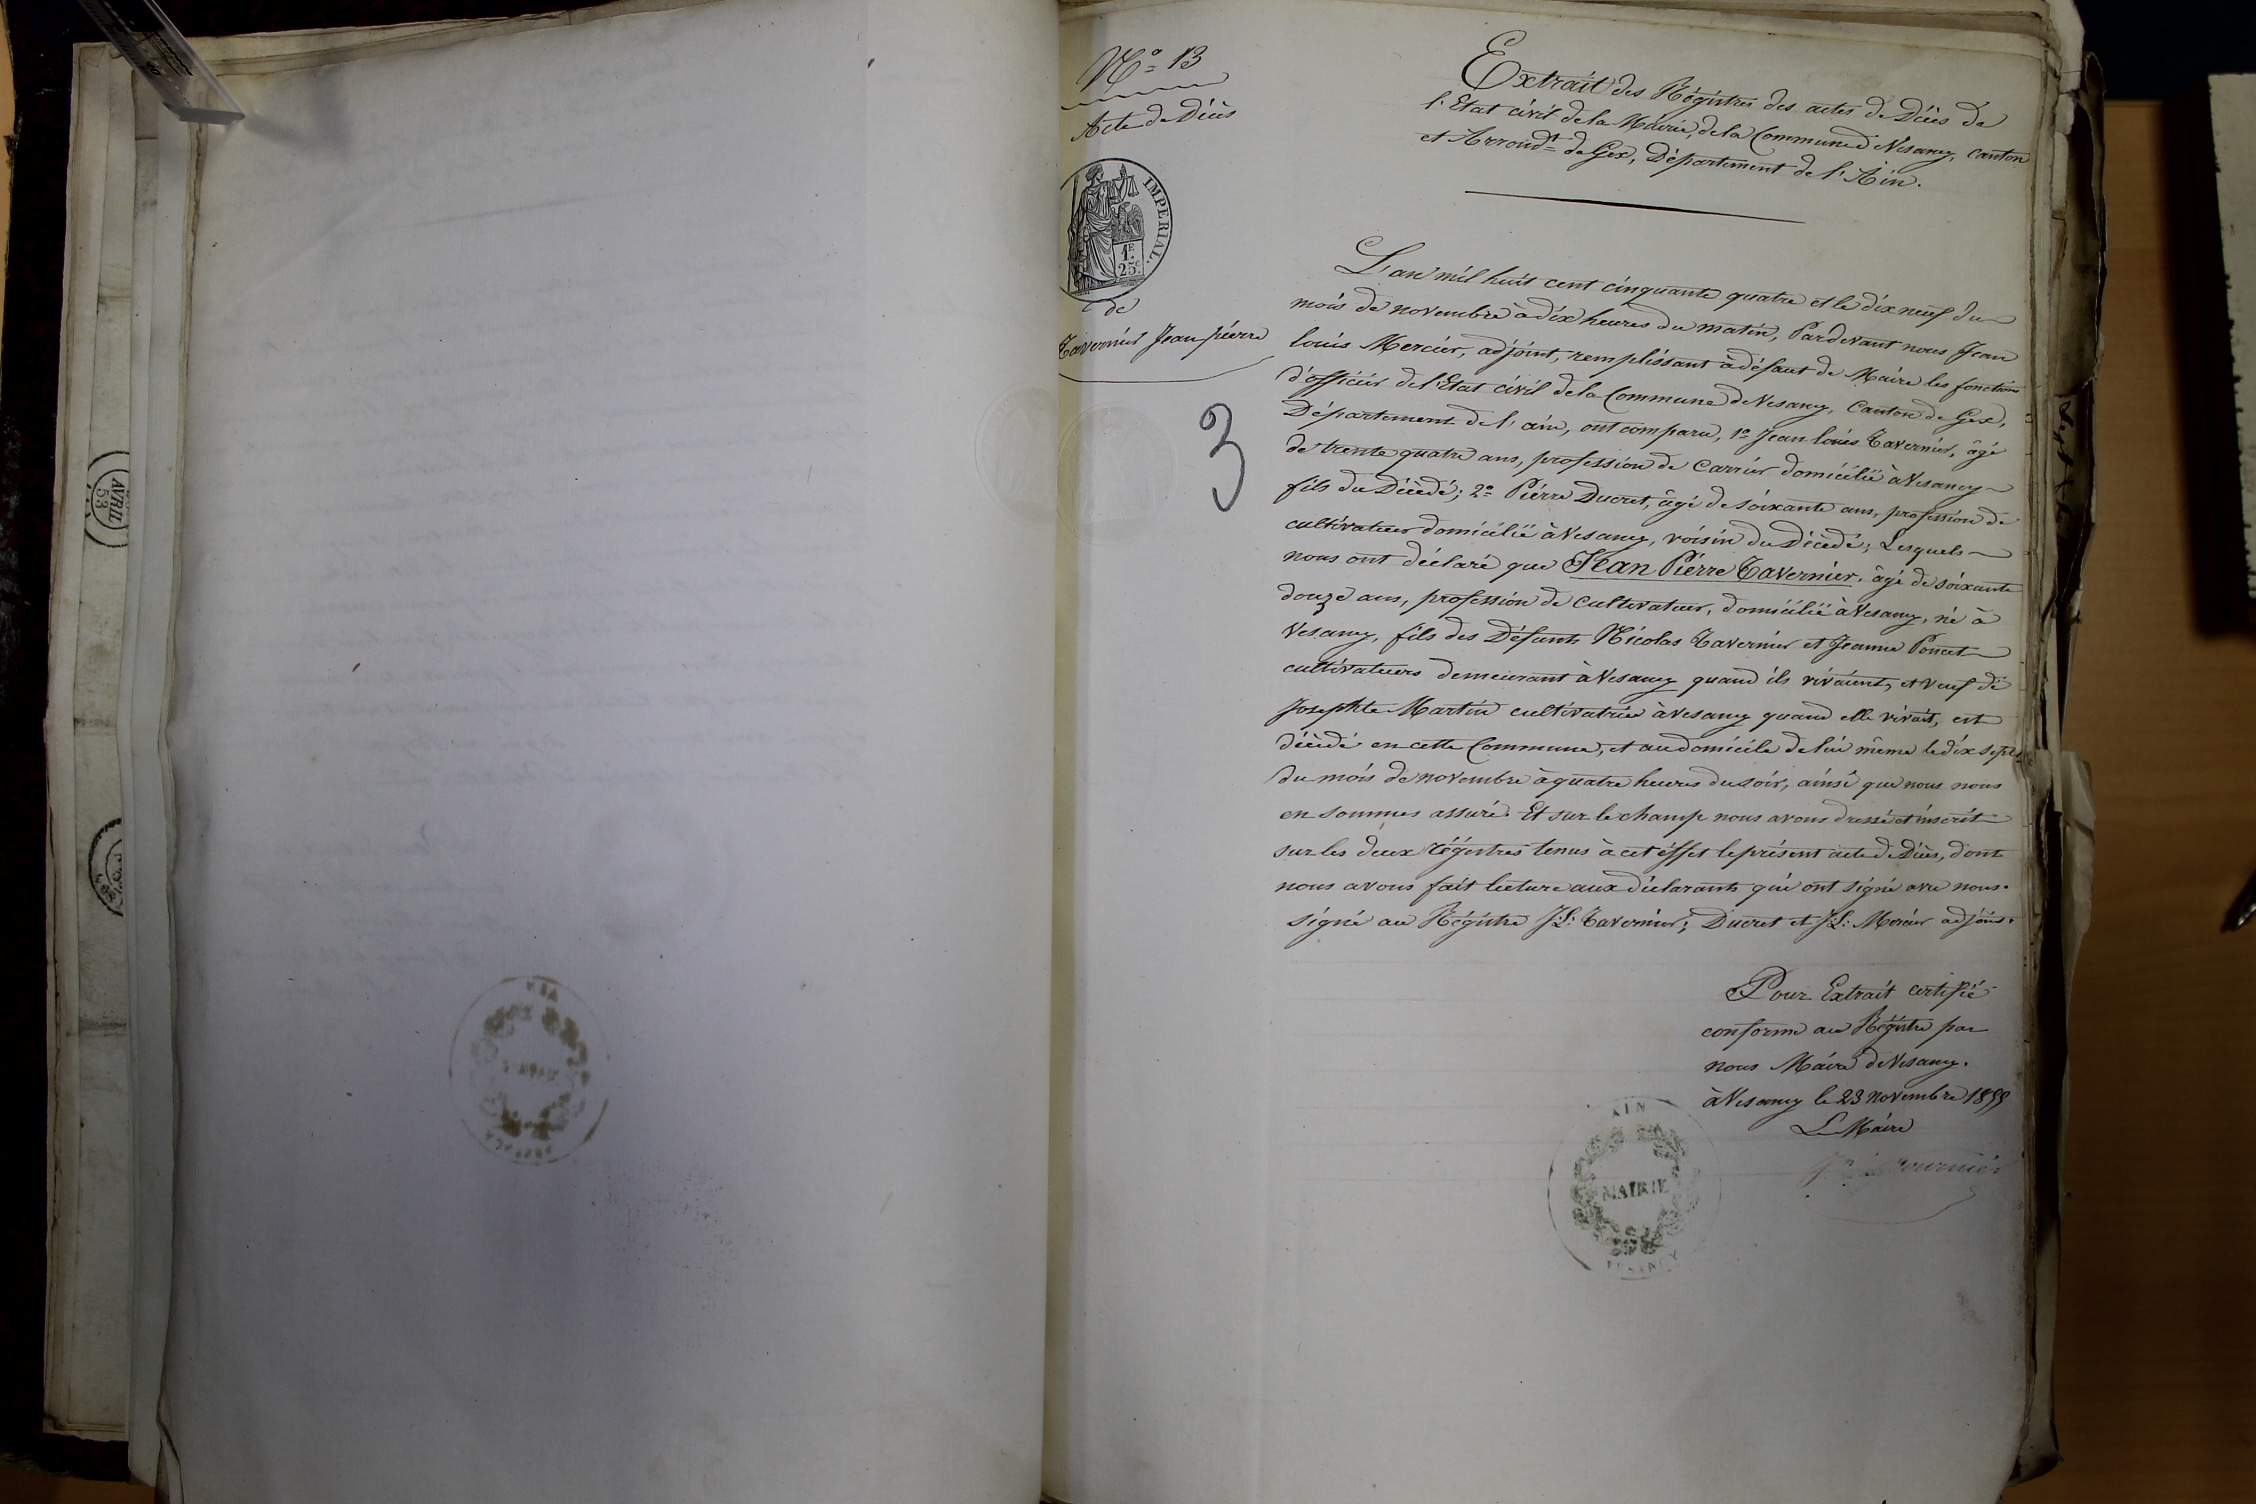 N° 13
Acte de Décès
IMPERIAL.
1F
25c
de
Tavernier Jean pierre
3
Extrait des Régistres des actes de Décès de
l'Etat civil de la Mairie, de la Commune de Vesancy, canton
et Arrondt de Gex, Département de l'Ain.
L'an mil huit cent cinquante quatre et le dix neuf du
mois de novembre à dix heures du matin, Pardevant nous Jean
louis Mercier, adjoint, remplissant à défaut de Maire les fonctions
d'officier de l'Etat civil de la Commune de Vesancy, Canton de Gex,
Département de l'ain, ont comparu, 1° Jean louis Tavernier, âgé
de trente quatre ans, profession de Carrier domicilié à Vesancy
fils du Décédé; 2° Pierre Ducret, âgé de soixante ans, profession de
cultivateur domicilié à Vesancy, voisin du Décédé; Lesquels
nous ont déclaré que Jean Pierre Tavernier, âgé de soixante
douze ans, profession de Cultivateur, domicilié à Vesancy, né à
Vesancy, fils des Défunts Nicolas Tavernier et Jeanne Poncet
cultivateurs demeurant à Vesancy quand ils vivaient, et veuf de
Josephte Martin cultivatrice à Vesancy quand elle vivait, est
décédé en cette Commune, et au domicile de lui même le dix sept
du mois de novembre à quatre heures du soir, ainsi que nous nous
en sommes assuré. Et sur le champ nous avons dressé et inscrit
sur les deux régistres tenus à cet éffet le présent acte de Décès, dont
nous avons fait lecture aux déclarants qui ont signé avec nous.
signé au Régistre J.L. Tavernier; Ducret et J.L. Mercier adjoint.
Pour Extrait certifié
conforme au Régistre par
nous Maire de Vesancy.
à Vesancy le 23 novembre 1855
Le Maire
AIN
MAIRIE
VESANCY
AVRIL
53